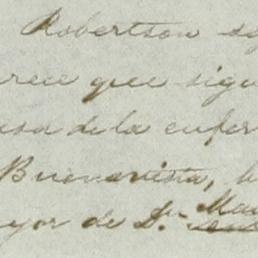 Robertson
rece que sigu
usa de la enfer
Buenavista, h
yor de Dn Ma